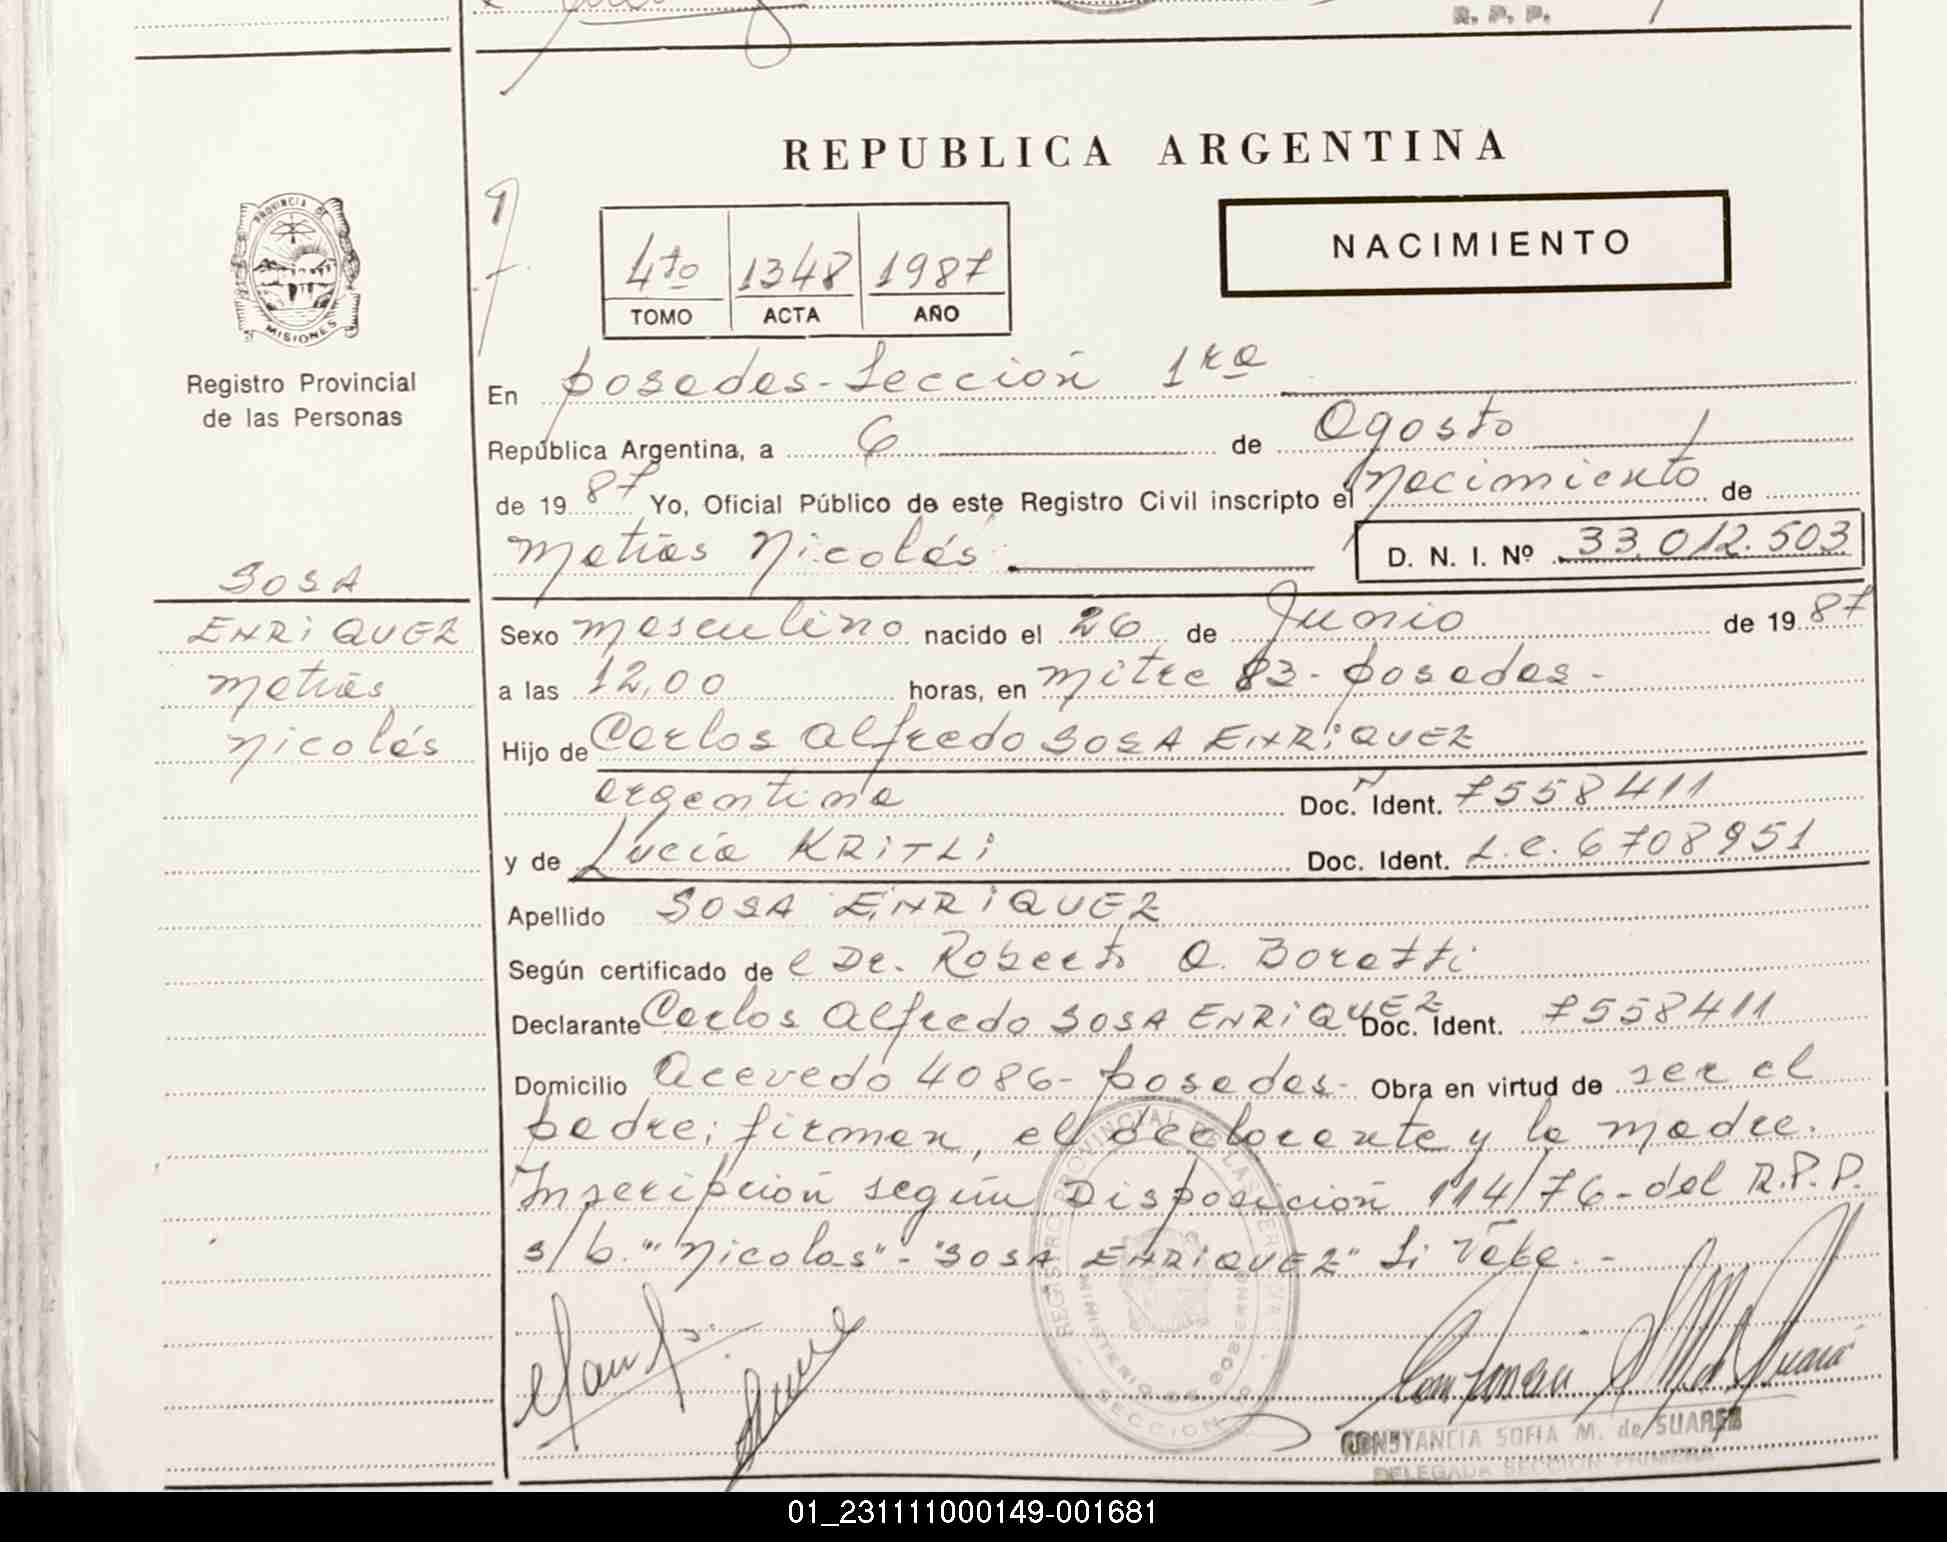 R. P. P.
REPUBLICA ARGENTINA
PROVINCIA DE
MISIONES
Registro Provincial
de las Personas
4to 1348 1987
TOMO ACTA AÑO
NACIMIENTO
En Posadas - Sección 1ra
República Argentina, a 6 de Agosto
de 19 87 Yo, Oficial Público de este Registro Civil inscripto el Nacimiento de
Matías Nicolás D. N. I. Nº 33.012.503
SOSA
ENRiQUEZ
Matías
Nicolás
Sexo masculino nacido el 26 de Junio de 19 87
a las 12,00 horas, en Mitre 83 - Posadas -
Hijo de Carlos Alfredo SOSA ENRiQUEZ
argentina Doc. Ident. 7558411
y de Lucía KRiTLi Doc. Ident. L.C. 6708951
Apellido SOSA ENRiQUEZ
Según certificado de l Dr. Roberto A. Boratti
Declarante Carlos Alfredo SOSA ENRiQUEZ Doc. Ident. 7558411
Domicilio Acevedo 4086 - Posadas - Obra en virtud de ser el
padre; firman, el declarante y la madre.
Inscripción según Disposición 114/76 - del R.P.P.
s/b. "Nicolas" - "SOSA ENRiQUEZ" Si Vale. -
REGISTRO PROVINCIAL DE LAS PERSONAS
MINISTERIO DE GOBIERNO
SECCION
CONSTANCIA SOFIA M. de SUAREZ
DELEGADA SECCION PRIMERA
01_231111000149-001681